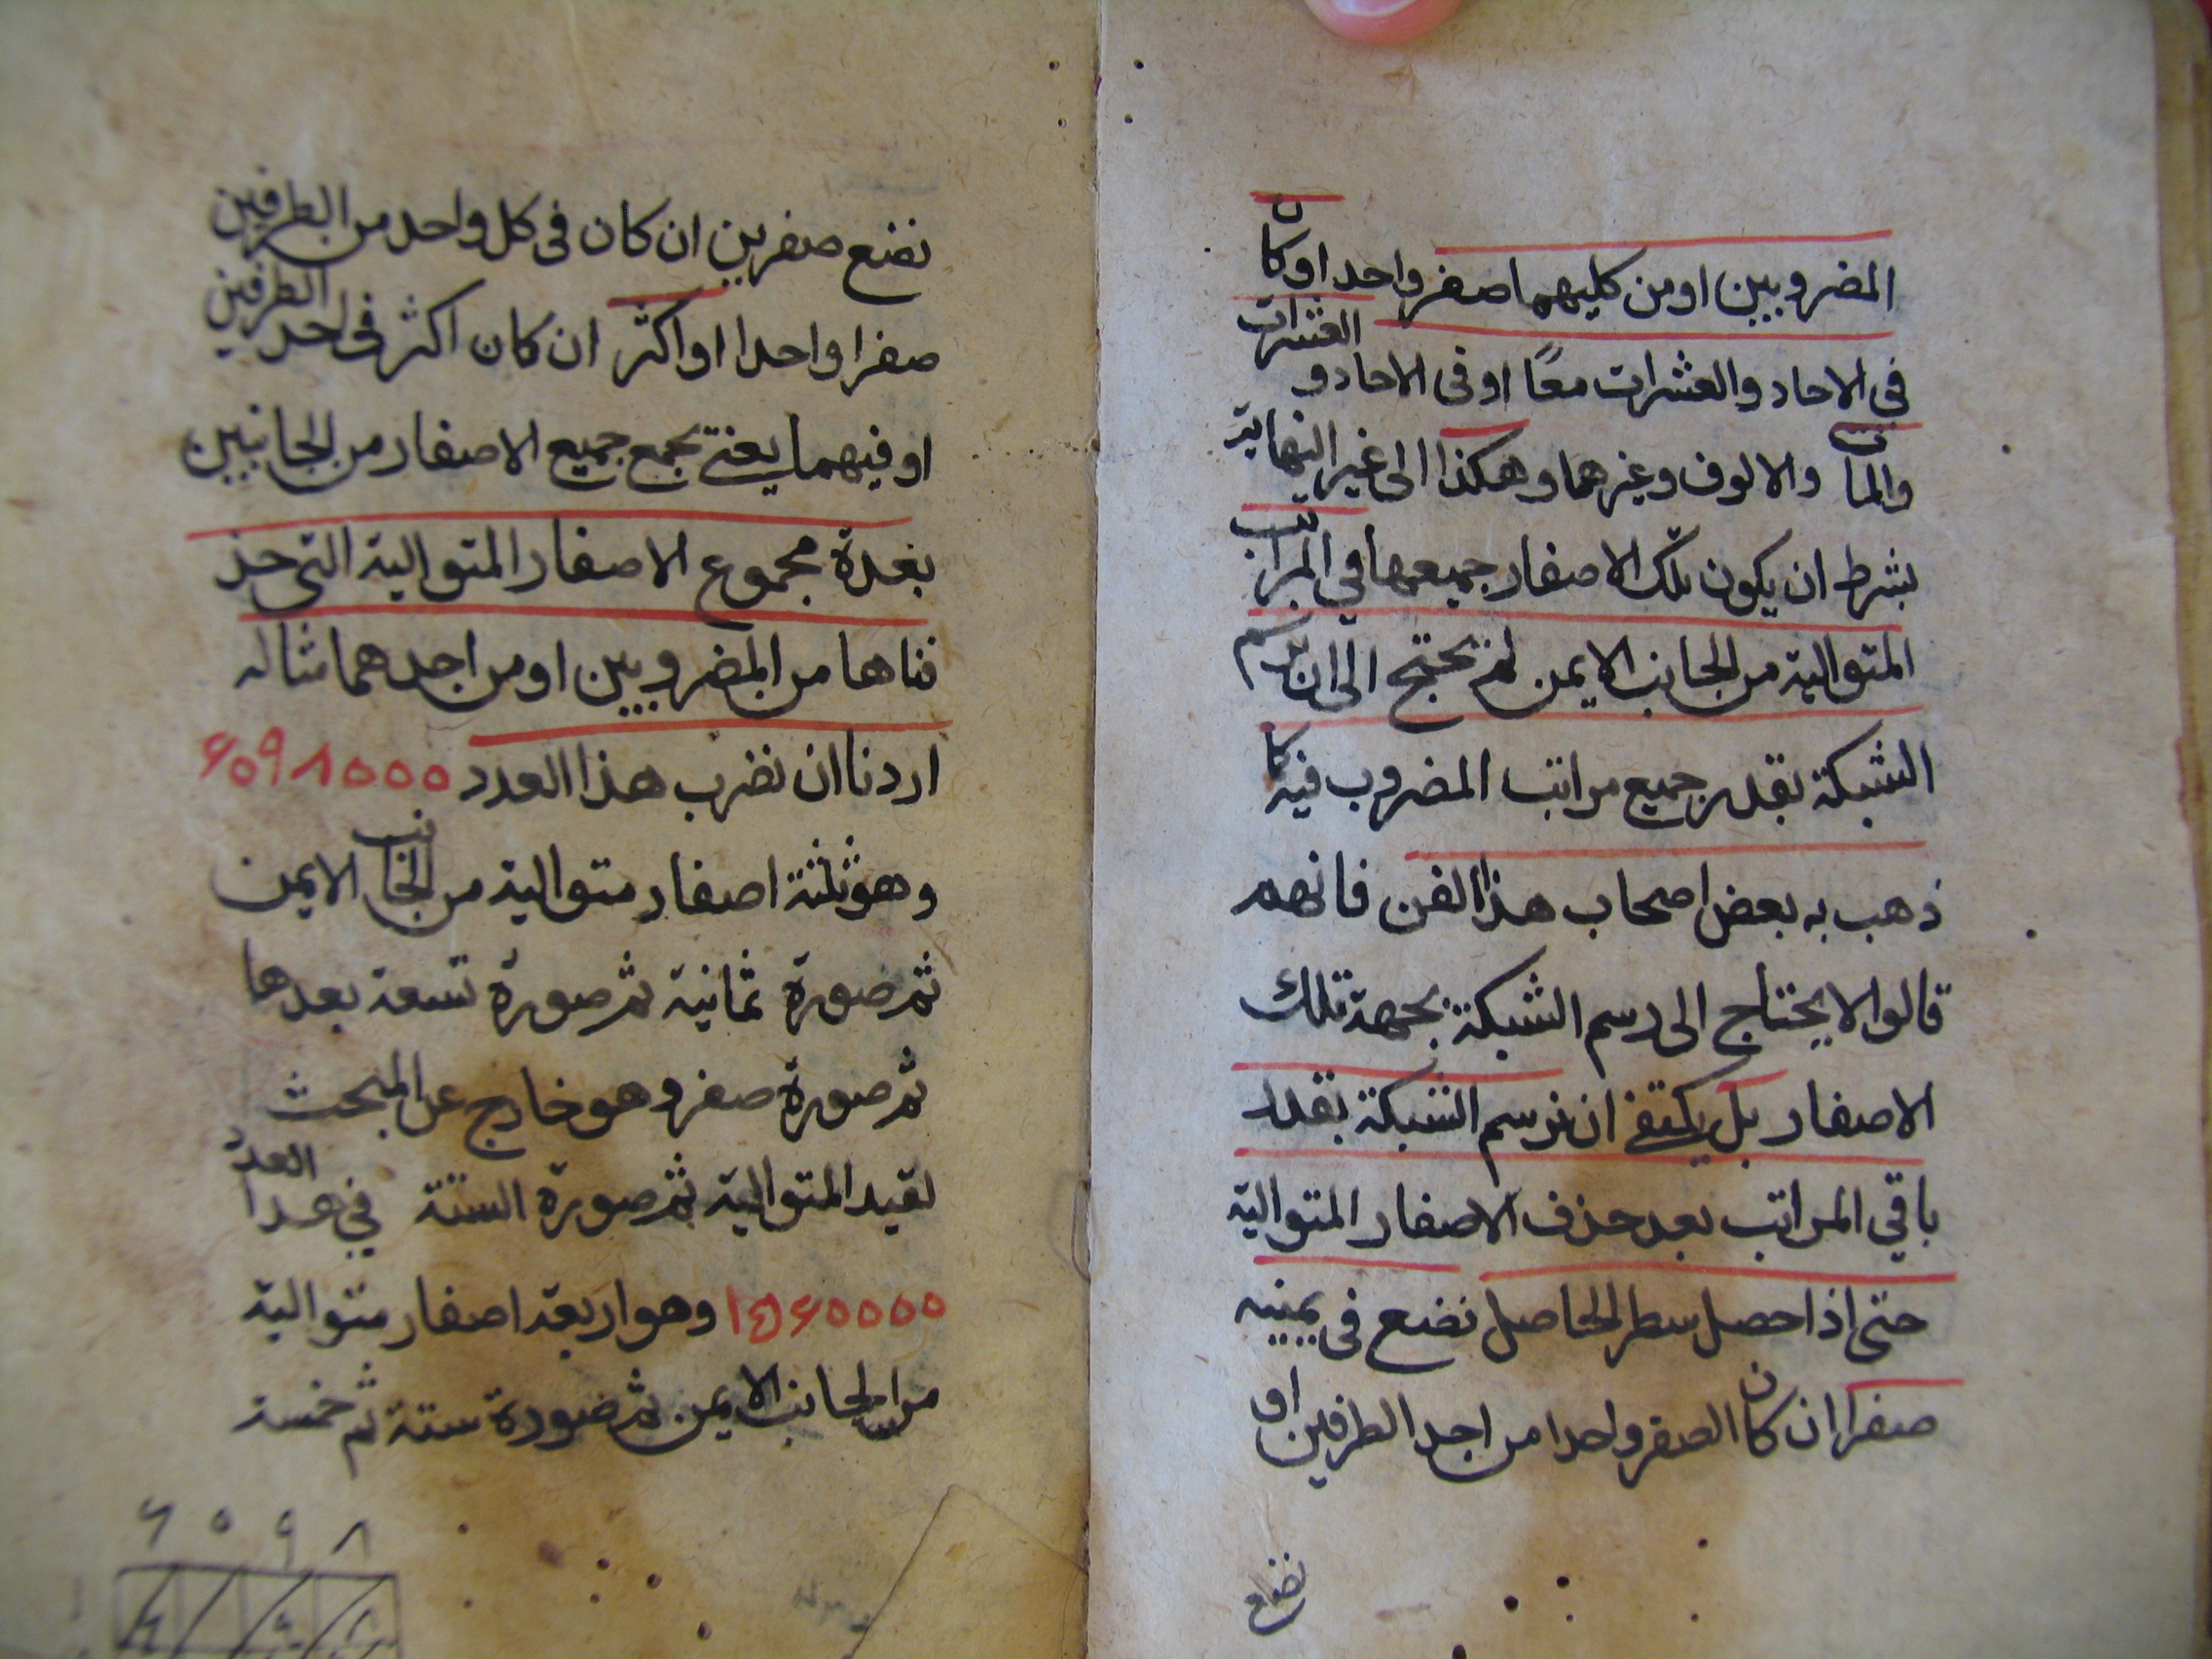 المضروبين او من كليهما صفر واحد او كان
في الاحاد والعشرات معًا او فى الاحاد و العشرات
والمآت والالوف وغيرهما وهكذا الى غير النهاية
بشرط ان يكون تلك الاصفار جميعها في المراتب
المتوالية من الجانب الايمن لم يحتج الى ان يرسم
الشبكة بقدر جميع مراتب المضروب فيه كما
ذهب به بعض اصحاب هذا الفن فانهم
قالوا لا يحتاج الى رسم الشبكة بجهة تلك
الاصفار بل يكتفے ان نرسم الشبكة بقدر
باقي المراتب بعد حذف الاصفار المتوالية
حتى اذا حصل سطر الحاصل نضع فى يمينه
صفرا ان كان الصفر واحدا من احد الطرفين او
نضع
نضع صفرين ان كان فى كل واحد من الطرفين
صفرا واحدا او اكثر ان كان اكثر فى احد الطرفين
او فيهما يعنے بجمع جميع الاصفار من الجانبين
بعدة مجموع الاصفار المتوالية التى حذ
فناها من المضروبين او من احدهما مثاله
اردنا ان نضرب هذا العدد ۶۰۹۸۰۰۰
وهو ثلثة اصفار متوالية من الجانب الايمن
ثم صورة ثمانية ثم صورة تسعة بعدها
ثم صورة صفر وهو خارج عن المبحث
لقيد المتوالية ثم صورة الستة في هذا العدد
۱۵۶۰۰۰۰ وهو اربعة اصفار متوالية
من الجانب الايمن ثم صورة ستة ثم خمسة
۶ ۰ ۹ ۸